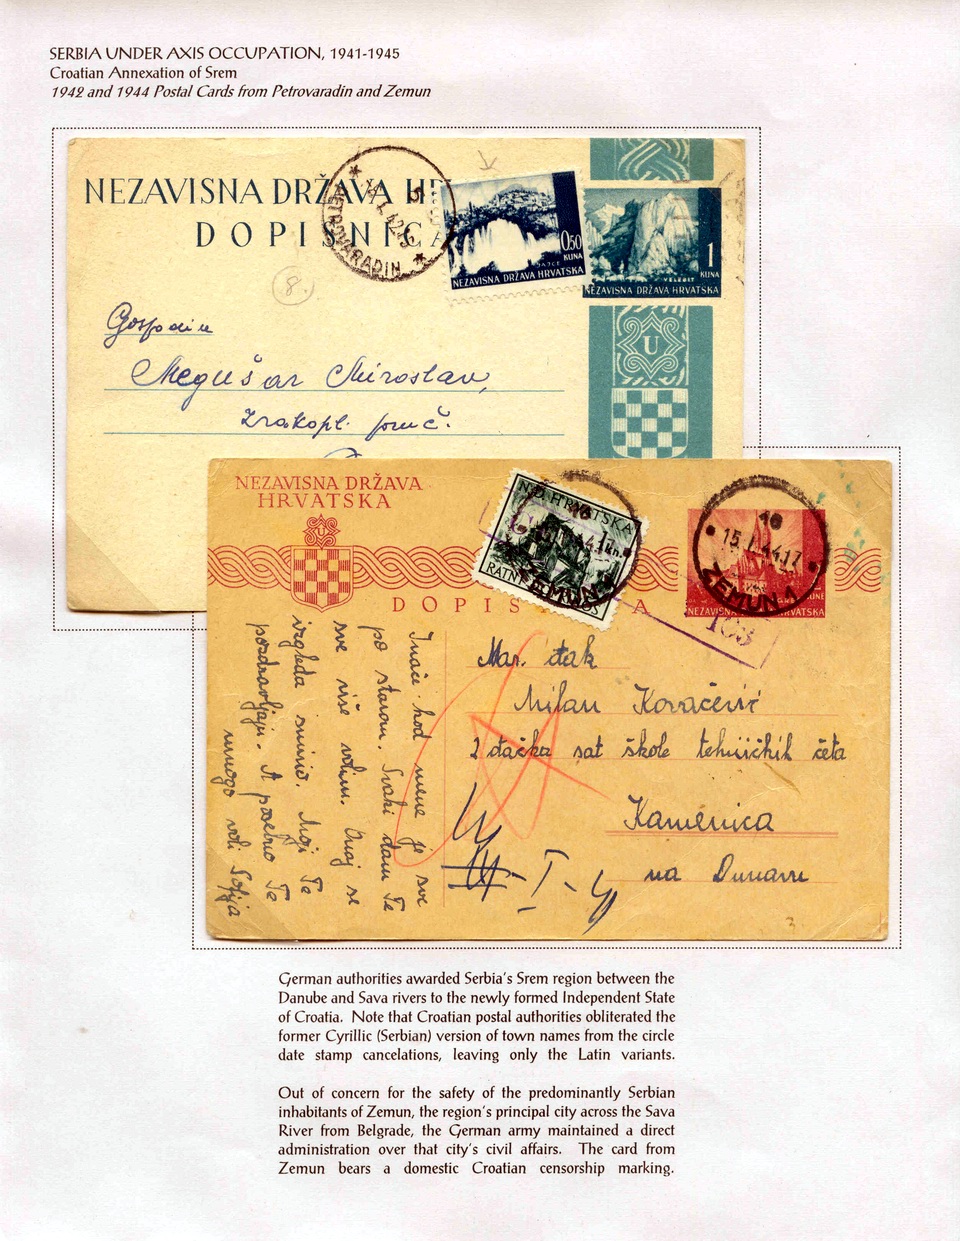 SERBIA UNDER AXIS OCCUPATION, 1941-1945
Croatian Annexation of Srem
1942 and 1944 Postal Cards from Petrovaradin and Zemun
NEZAVISNA DRŽAVA
DOPISNICA
PETROVARADIN
0,50
KUNA
JAJCE
NEZAVISNA DRŽAVA HRVATSKA
1
KUNA
VELEBIT
NEZAVISNA DRŽAVA HRVATSKA
8.
U
Gospodin
Megušar Miroslav,
Zrakopl.
NEZAVISNA DRŽAVA
HRVATSKA
N.D. HRVATSKA
1 kn.
ZEMUN
16
15.I.44.17
ZEMUN 1
NEZAVISNA HRVATSKA
DOPIS A
Mar. đak
Milan Kovačević
2 đačka sat škole tehničkih četa
Kamenica
na Dunavu
Inače kod mene je sve
po starom. Svaki dan Te
sve više volim. Onaj se
izgleda smirio. Moji Te
pozdravljaju. A posebno Te
mnogo voli Sofija
German authorities awarded Serbia's Srem region between the
Danube and Sava rivers to the newly formed Independent State
of Croatia. Note that Croatian postal authorities obliterated the
former Cyrillic (Serbian) version of town names from the circle
date stamp cancelations, leaving only the Latin variants.
Out of concern for the safety of the predominantly Serbian
inhabitants of Zemun, the region's principal city across the Sava
River from Belgrade, the German army maintained a direct
administration over that city's civil affairs. The card from
Zemun bears a domestic Croatian censorship marking.